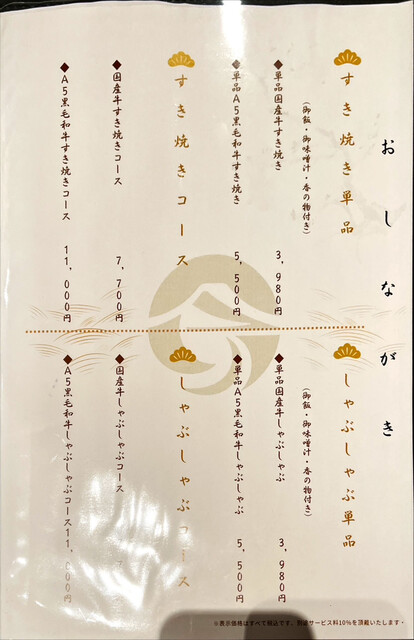 おしながき
すき焼き単品
（御飯・御味噌汁・香の物付き）
◆単品国産牛すき焼き 3,980円
◆単品A5黒毛和牛すき焼き 5,500円
すき焼きコース
◆国産牛すき焼きコース 7,700円
◆A5黒毛和牛すき焼きコース 11,000円
しゃぶしゃぶ単品
（御飯・御味噌汁・香の物付き）
◆単品国産牛しゃぶしゃぶ 3,980円
◆単品A5黒毛和牛しゃぶしゃぶ 5,500円
しゃぶしゃぶコース
◆国産牛しゃぶしゃぶコース
◆A5黒毛和牛しゃぶしゃぶコース11,000円
※表示価格はすべて税込です。別途サービス料10%を頂戴いたします。